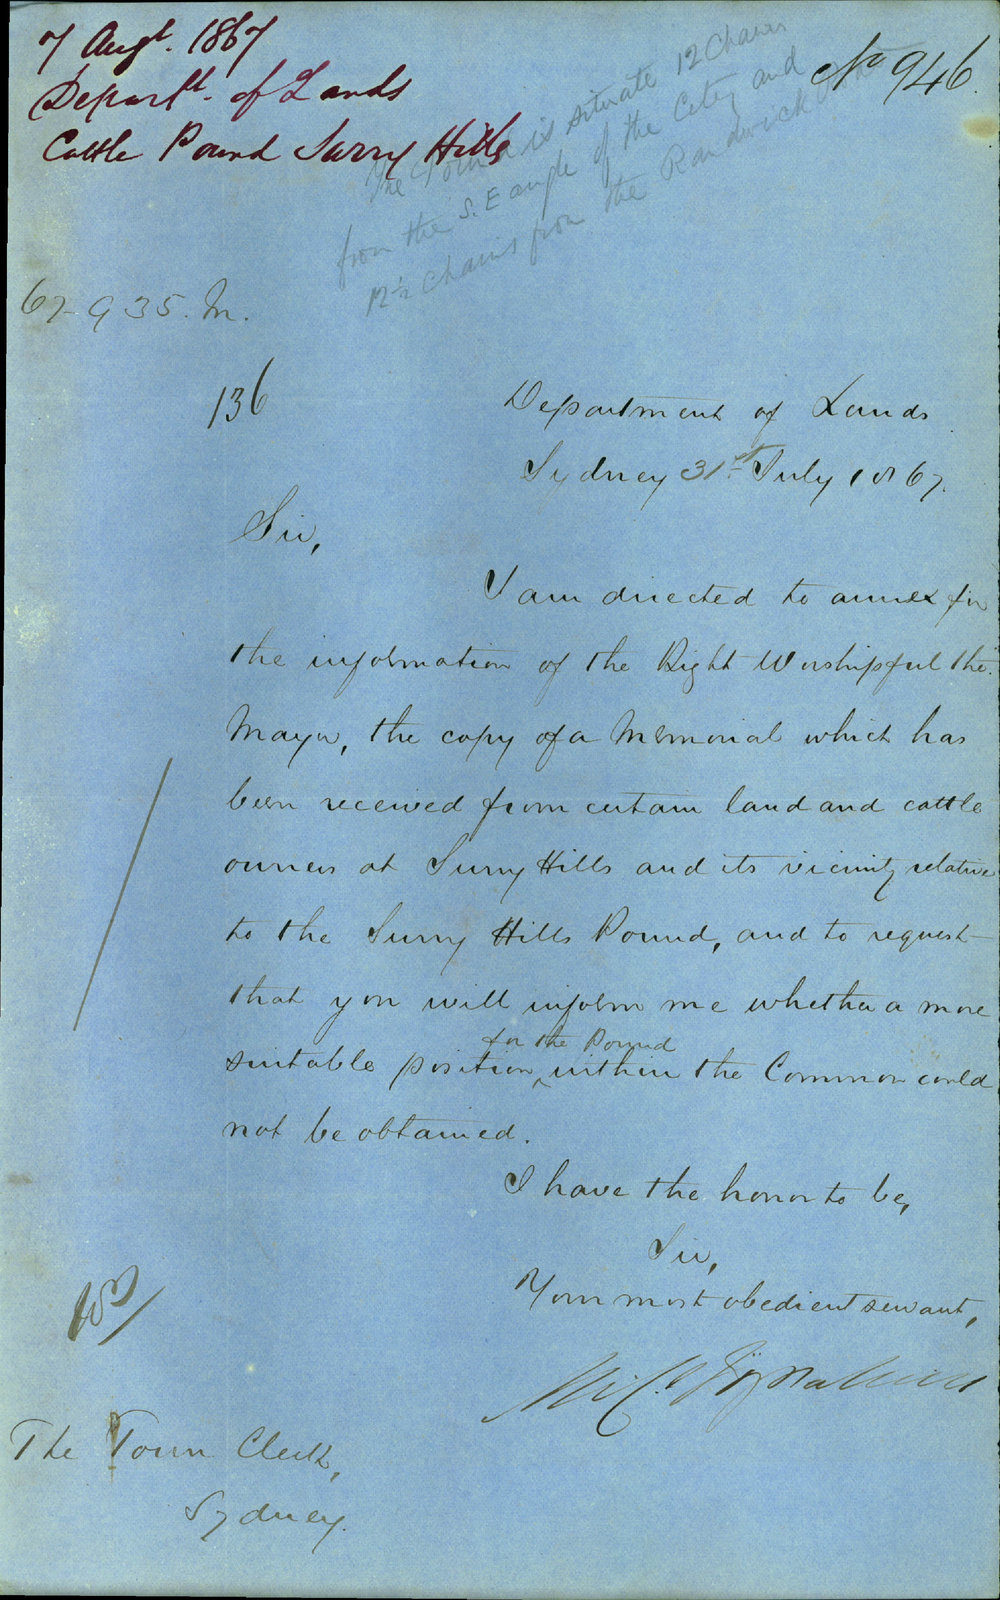 7 Augt. 1867
Departt. of Lands
Cattle Pound Surry Hills
No 946.
The Pound is situate 12 Chains
from the S. E angle of the City and
12½ Chains from the Randwick
67-935. M.
136
Department of Lands
Sydney 31st July 1867.
Sir,
I am directed to annex for
the information of the Right Worshipful the
Mayor, the copy of a Memorial which has
been received from certain land and cattle
owners at Surry Hills and its vicinity relative
to the Surry Hills Pound, and to request
that you will inform me whether a more
for the Pound
suitable position ^ within the Common could
not be obtained.
I have the honor to be,
Sir,
Your most obedient servant,
The Town Clerk,
Sydney.